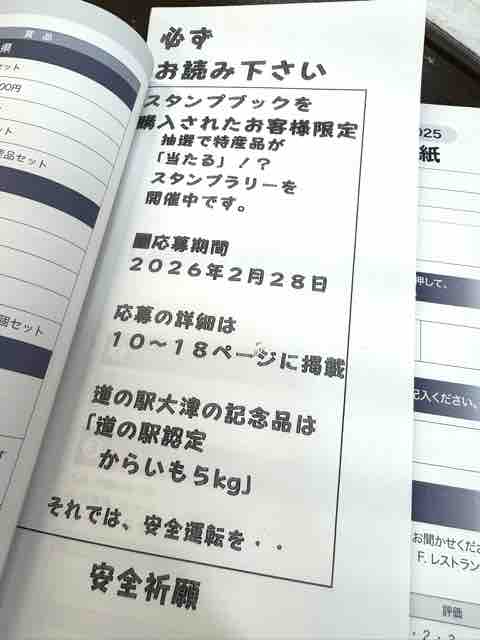 賞品
県
セット
00円
ト
セット
産品セット
個セット
必ず
お読み下さい
スタンプブックを
購入されたお客様限定
抽選で特産品が
「当たる」！？
スタンプラリーを
開催中です。
■応募期間
２０２６年２月２８日
応募の詳細は
１０～１８ページに掲載
道の駅大津の記念品は
「道の駅認定
からいも５kg」
それでは、安全運転を・・
安全祈願
2025
紙
押して、
記入ください。
お聞かせくだ
F. レストラン
評価
・2・3